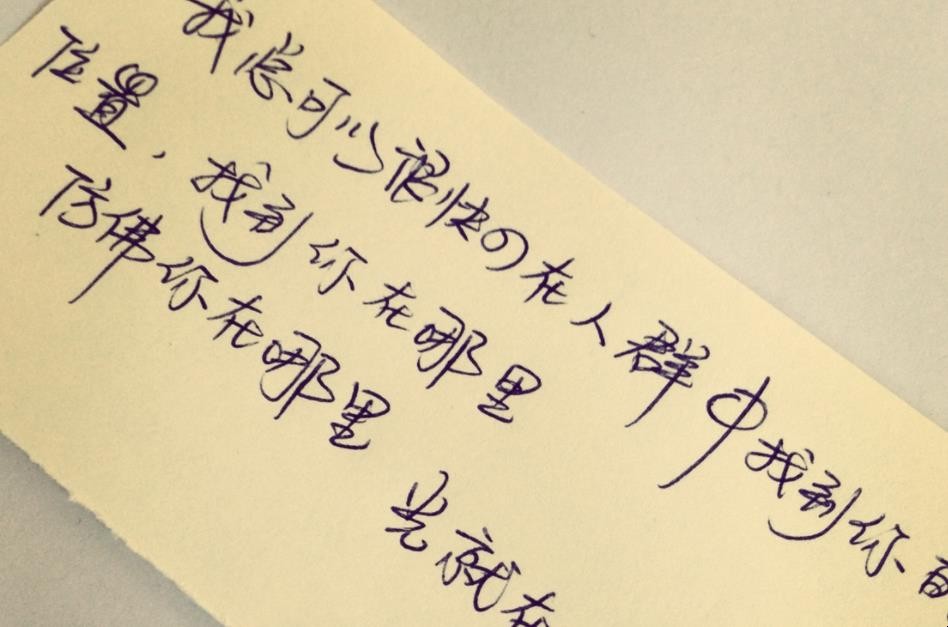 我总可以很快の在人群中找到你
位置，找到你在哪里
仿佛你在哪里
光就在